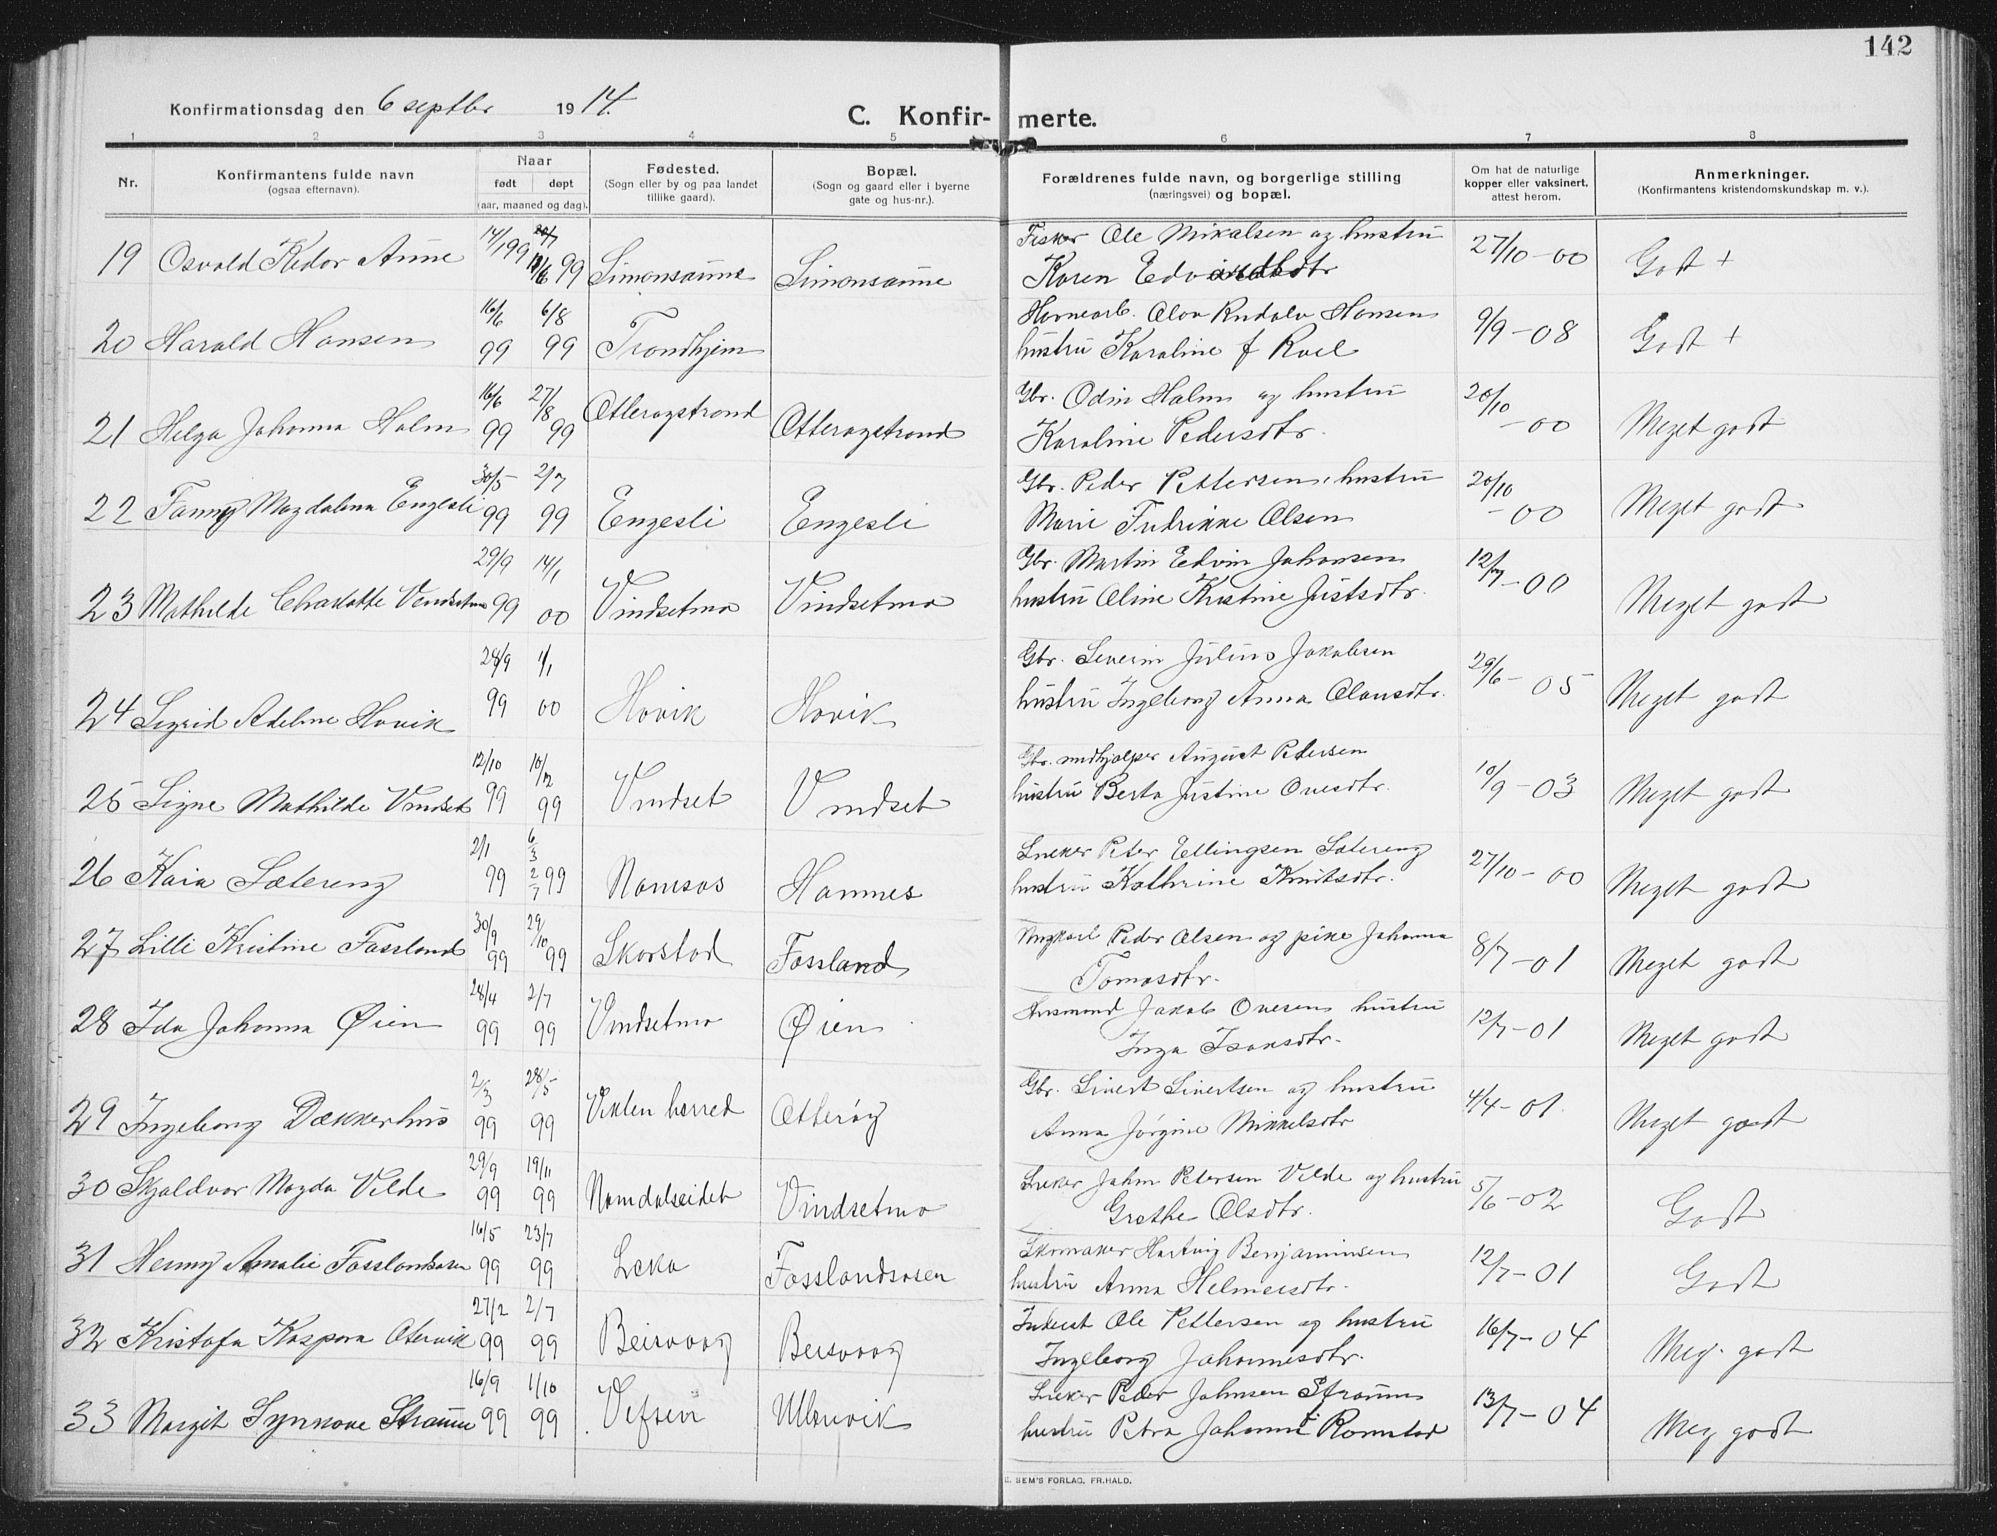 142
Konfirmationsdag den 6 septbr 1914.
C. Konfirmerte.
1 2 3 4 5 6 7 8
Nr. Konfirmantens fulde navn (ogsaa efternavn). Naar født døpt (aar, maaned og dag). Fødested. (Sogn eller by og paa landet tillike gaard). Bopæl. (Sogn og gaard eller i byerne gate og hus-nr.). Forældrenes fulde navn, og borgerlige stilling (næringsvei) og bopæl. Om hat de naturlige kopper eller vaksinert, attest herom. Anmerkninger. (Konfirmantens kristendomskundskap m. v.).
19 Osvald Kedor Aune 14/1 99 99 Simonsaune Simonsaune Fisker Ole Mikalsen og hustru 27/10-00 Godt +
Karen Edvardsdtr
20 Harald Hansen 16/6 99 6/8 99 Trondhjem Havnearb. Olav Rudolv Hansen 9/9-08 Godt +
hustru Karoline f Roel
21 Helga Johanna Holm 16/6 99 27/8 99 Otterøystrand Otterøystrand Gbr. Odin Holm og hustru 20/10-00 Meget godt
Karoline Pedersdtr.
22 Fanny Magdalena Engesli 30/5 99 2/7 99 Engesli Engesli Gbr. Peder Pettersen, hustru 20/10-00 Meget godt
Marie Fredrikke Olsen
23 Mathilde Charlotte Vindsetmo 29/9 99 14/1 00 Vindsetmo Vindsetmo Gbr. Martin Edvin Johansen 12/7-00 Meget godt
hustru Oline Kristine Justsdtr.
24 Sigrid Adeline Hovik 28/9 99 1/1 00 Hovik Hovik Gbr. Severin Julius Jakobsen 29/6-05 Meget godt
hustru Ingeborg Anna Olausdtr.
25 Signe Mathilde Vindset 12/10 99 10/12 99 Vindset Vindset Gbr. medhjælper August Petersen 10/9-03 Meget godt
hustru Berta Justine Ovesdtr.
26 Kaia Sætereng 2/1 99 6/3 2/7 99 Namsos Hamnes Sneker Peter Ellingsen Sætereng 27/10-00 Meget godt
hustru Kathrine Knutsdtr.
27 Lilli Kristine Fossland 30/9 99 29/10 99 Skorstad Fossland Ungkarl Peder Olsen og pike Johanna 8/7-01 Meget godt
Tomasdtr.
28 Ida Johanna Øien 28/4 99 2/7 99 Vindsetmo Øien Husmand Jakob Ovesen hustru 12/7-01 Meget godt
Inga Isaksdtr.
29 Ingeborg Dækkerhus 2/3 99 28/5 99 Vikten herred Otterøy Gbr. Sivert Sivertsen og hustru 4/4-01. Meget godt
Anna Jørgine Mikkelsdtr
30 Skjaldvor Magda Velde 29/9 99 19/11 99 Namdalseidet Vindsetmo Sneker Johan Petersen Velde og hustru 5/6-02 Godt
Grethe Olsdtr.
31 Henny Amalie Fosslandsosen 16/5 99 23/7 99 Leka Fosslandsosen Skomaker Hartvig Benjaminsen 12/7-01 Godt
hustru Anna Helmersdtr.
32 Kristofa Kaspara Otervik 27/2 99 2/7 99 Beisvaag Beisvaag Inderst Ole Pettersen og hustru 16/7-04 Meg. godt
Ingeborg Johannesdtr.
33 Margit Synnøve Straum 16/9 99 1/10 99 Vefsen Ulsnvik Sneker Peder Johnsen Straum 13/7-04 Meg godt
hustru Petra Johanne f Romstad
E. SEM'S FORLAG, FR.HALD.